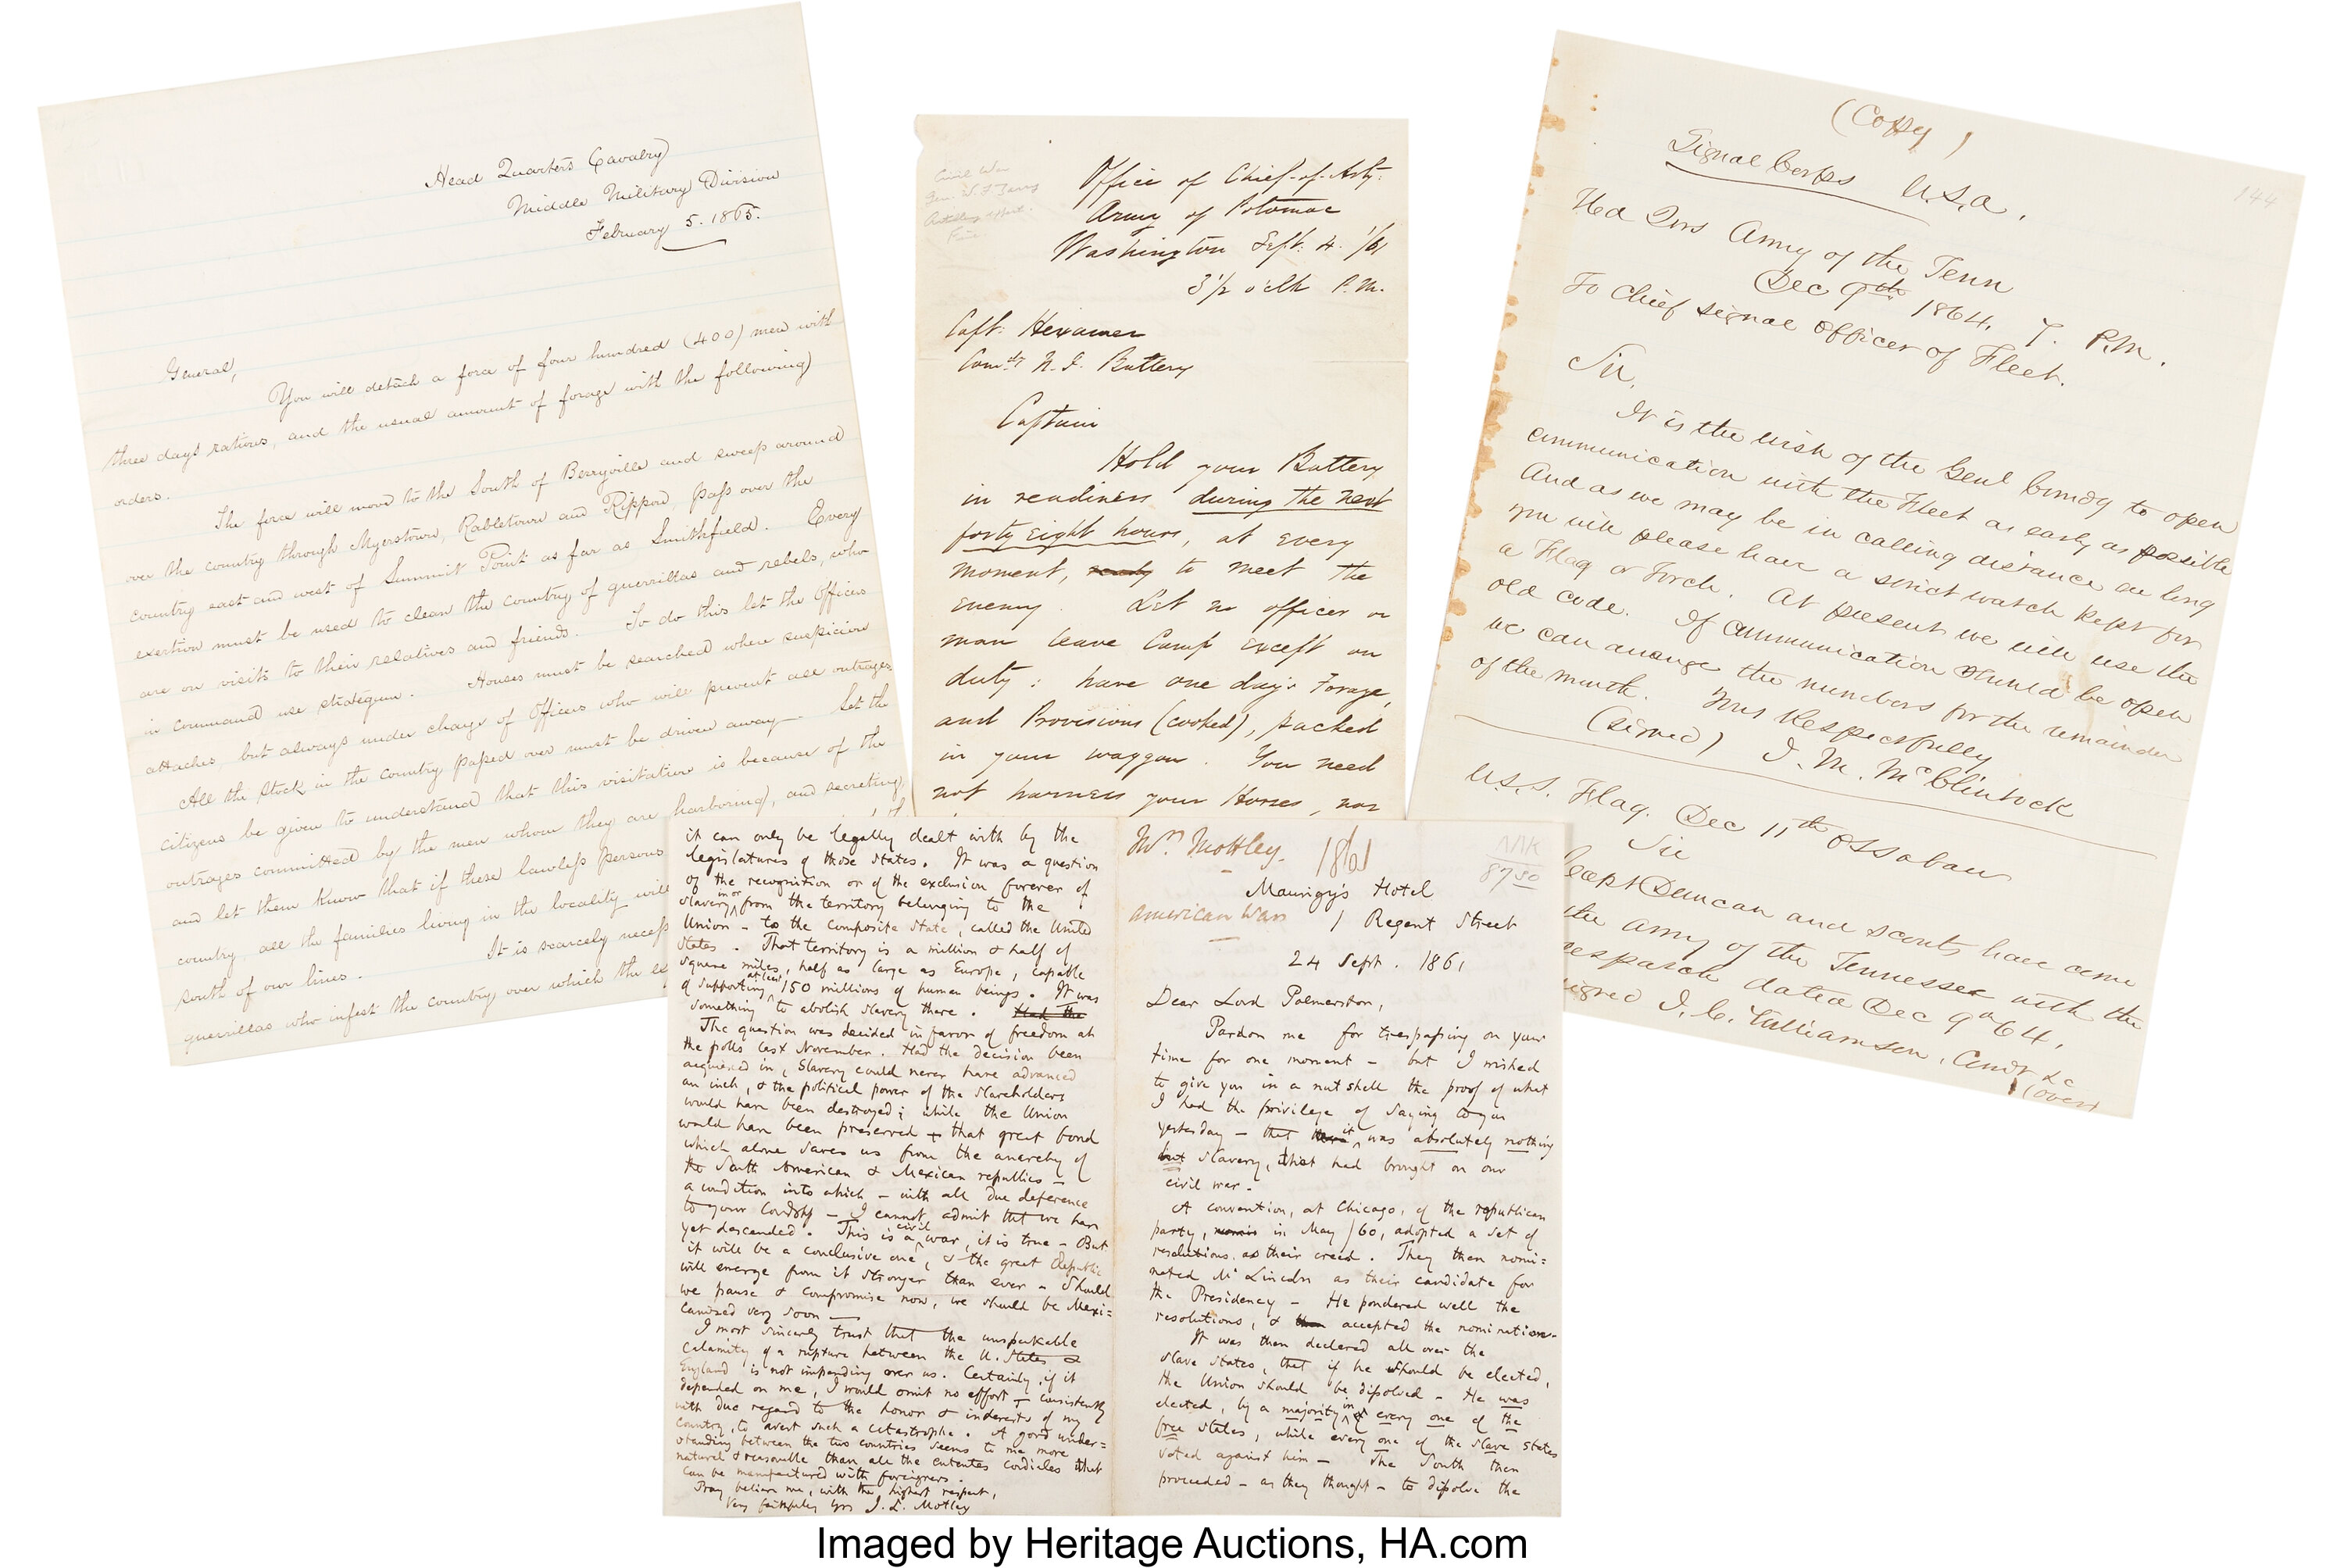 Head Quarters Cavalry
Middle Military Division
February 5. 1865.
General,
You will detach a force of four hundred (400) men with
three days rations, and the usual amount of forage with the following
orders.
The force will move to the South of Berryville and sweep around
over the country through Myerstown, Rabletown and Rippon, pass over the
country east and west of Summit Point as far as Smithfield. Every
exertion must be used to clean the country of guerrillas and rebels, who
are on visits to their relatives and friends. To do this let the Officers
in command use strategem. Houses must be searched where suspicion
attaches, but always under charge of Officers who will prevent all outrages
All the stock in the country passed over must be driven away. Let the
citizens be given to understand that this visitation is because of the
outrages committed by the men whom they are harboring, and secreting
and let them know that if these lawless persons
country, all the families living in the locality will
south of our lines. It is scarcely necess
guerrillas who infest the country over which the ex
Civil War
Office of Chief-of-Arty:
Army of Potomac
Washington Sept. 4. '/61
3 1/2 o'clk P.M.
Capt: Hexamer
Comdg N. J. Battery
Captain
Hold your Battery
in readiness during the next
forty eight hours, at every
moment, ready to meet the
enemy. Let no officer or
man leave Camp except on
duty: have one day's Forage,
and Provisions (cooked), packed
in your waggon. You need
not harness your Horses, nor
(Copy)
Signal Corps U.S.A.
144
Hed Qrs Army of the Tenn
Dec 9th 1864. 7. P.M.
To Chief Signal Officer of Fleet.
Sir,
It is the wish of the Genl Comdg to open
communication with the Fleet as early as possible
And as we may be in calling distance ere long
you will please have a strict watch kept for
a Flag or Torch. At present we will use the
old code. If communication should be open
we can arrange the numbers for the remainder
of the month. Yours Respectfully
(signed) J. M. McClintock
U.S.S. Flag. Dec 11th Ossabaw
Sir
Capt Duncan and scouts have come
the army of the Tennessee with the
despatch dated Dec 9th 64.
signed J. C. Williamson, Comdr &c
(over)
it can only be legally dealt with by the
legislatures of those states. It was a question
of the recognition or of the exclusion forever of
slavery in or from the territory belonging to the
Union - to the composite State, called the United
States. That territory is a million & half of
square miles, half as large as Europe, capable
of supporting at least 150 millions of human beings. It was
something to abolish slavery there. Had the
The question was decided in favor of freedom at
the polls last November. Had the decision been
acquiesced in, Slavery could never have advanced
an inch, & the political power of the slaveholders
would have been destroyed; while the Union
would have been preserved & that great bond
which alone saves us from the anarchy of
the South American & Mexican republics -
a condition into which - with all due deference
to your Lordship - I cannot admit that we have
yet descended. This is a civil war, it is true - But
it will be a conclusive one, & the great Republic
will emerge from it stronger than ever - Should
we pause & compromise now, we should be Mexi=
canized very soon -
I most sincerely trust that the unspeakable
calamity of a rupture between the U. States &
England is not impending over us. Certainly, if it
depended on me, I would omit no effort - consistently
with due regard to the honor & interests of my
country, to avert such a catastrophe. A good under=
standing between the two countries seems to me more
natural & reasonable than all the ententes cordiales that
can be manufactured with foreigners.
Pray believe me, with the highest respect,
Very faithfully yrs J. L. Motley
Mr. Mottley. 1861
8750
Maurigy's Hotel
American War
1 Regent Street
24 Sept. 1861
Dear Lord Palmerston,
Pardon me for trespassing on your
time for one moment - but I wished
to give you in a nutshell the proof of what
I had the privilege of saying to you
yesterday - that it was absolutely nothing
but slavery, that had brought on our
civil war -
A convention, at Chicago, of the republican
party, in May /60, adopted a set of
resolutions, as their creed. They then nomi=
nated Mr Lincoln as their candidate for
the Presidency - He pondered well the
resolutions, & then accepted the nomination.
It was then declared all over the
slave states, that if he should be elected,
the Union should be dissolved - He was
elected, by a majority in every one of the
free states, while every one of the slave states
voted against him - The South then
proceeded - as they thought - to dissolve the
Imaged by Heritage Auctions, HA.com